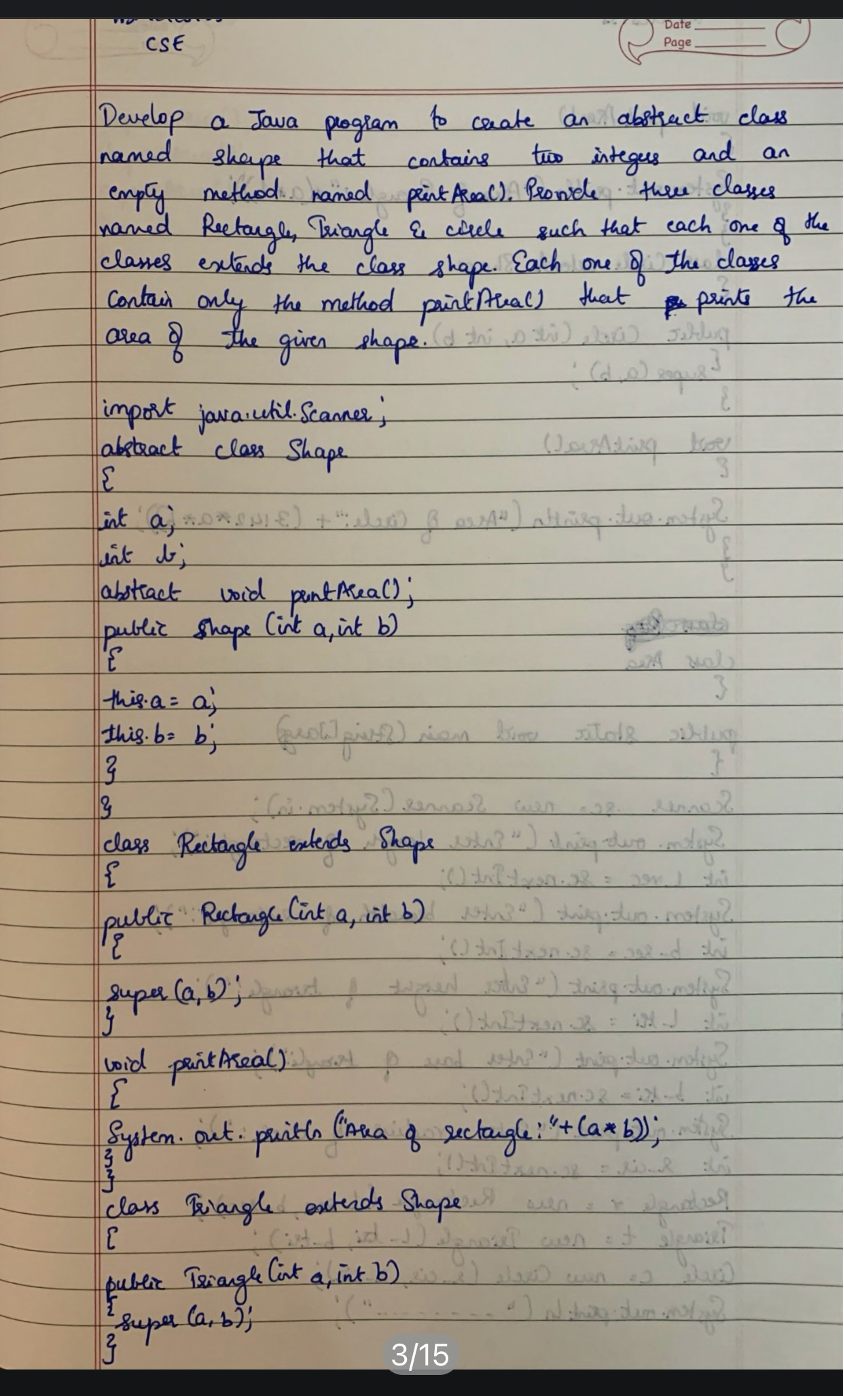 CSE
Date
Page
Develop a Java program to create an abstract class
named shape that contains two integers and an
empty method named printArea(). Provide three classes
named Rectangle, Triangle & circle such that each one of the
classes extends the class shape. Each one of the classes
contain only the method printArea() that prints the
area of the given shape.
import java.util.Scanner;
abstract class Shape
{
int a;
int b;
abstract void printArea();
public Shape (int a, int b)
{
this.a = a;
this.b = b;
}
}
class Rectangle extends Shape
{
public Rectangle (int a, int b)
{
super (a, b);
}
void printArea()
{
System.out.println ("Area of rectangle:"+(a*b));
}
}
class Triangle extends Shape
{
public Triangle (int a, int b)
{
super (a, b);
}
3/15